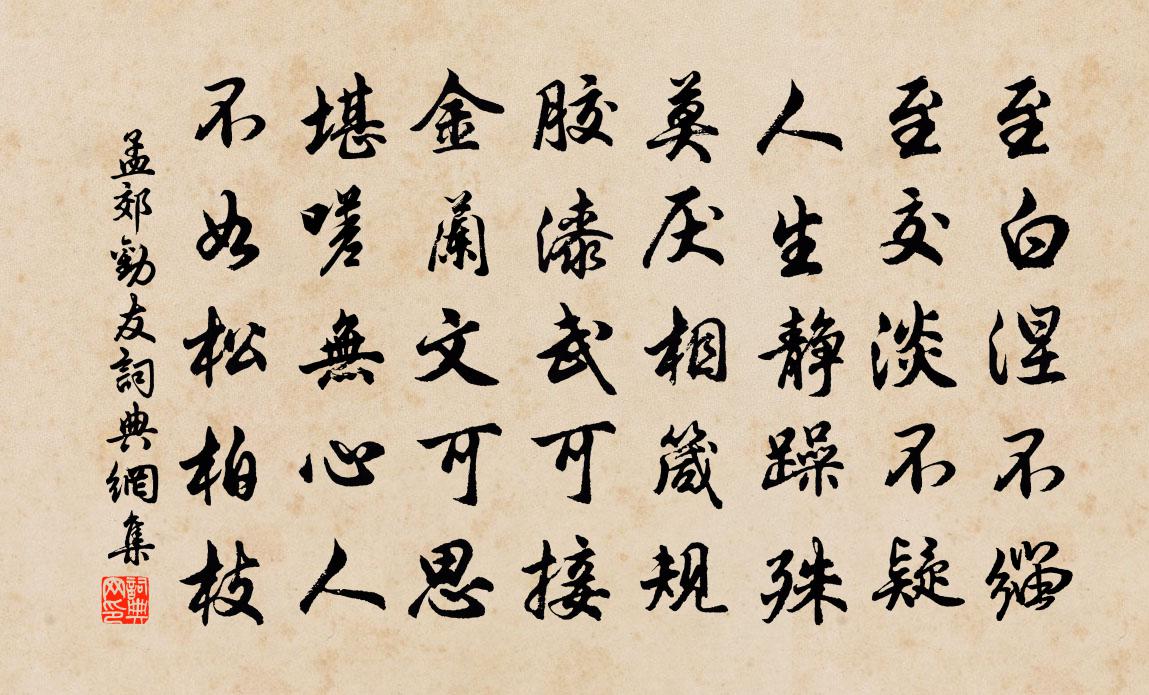 至白涅不緇
至交淡不疑
人生静躁殊
莫厌相箴規
膠漆武可接
金蘭文可思
堪嗟無心人
不如松柏枝
孟郊勸友詞典網集
詞典网印